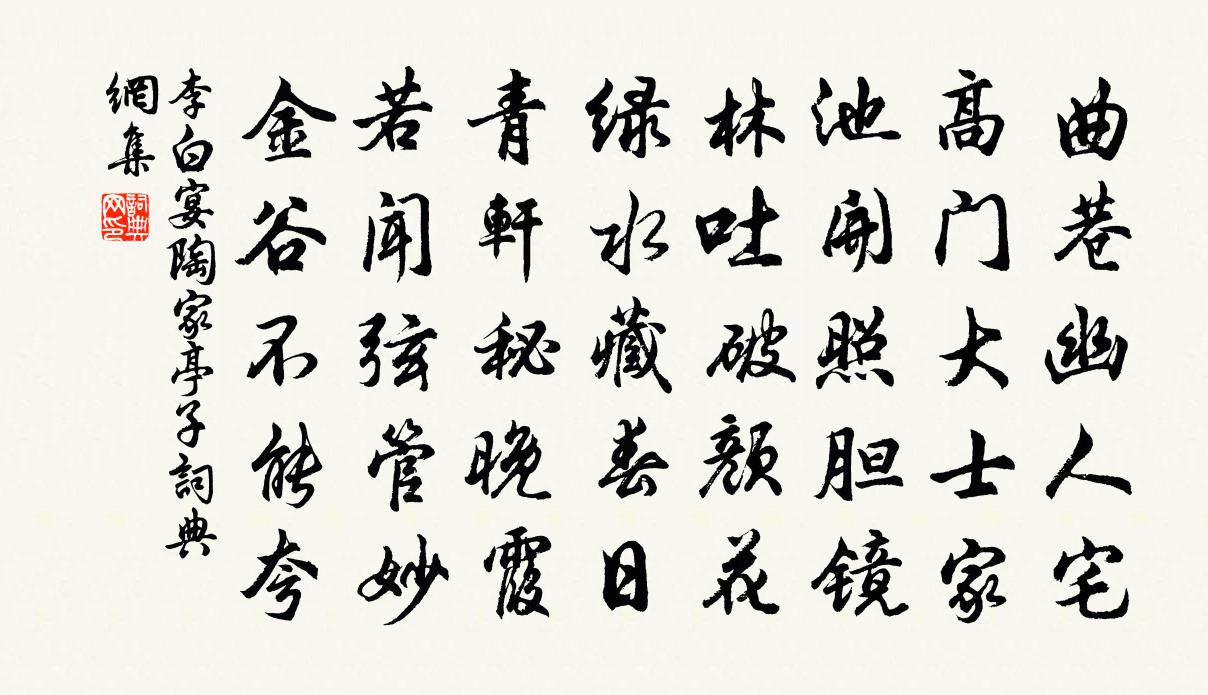 曲巷幽人宅
高门大士家
池開照胆镜
林吐破颜花
绿水藏春日
青軒秘晚霞
若闻弦管妙
金谷不能夸
李白宴陶家亭子詞典
網集
詞典
网印